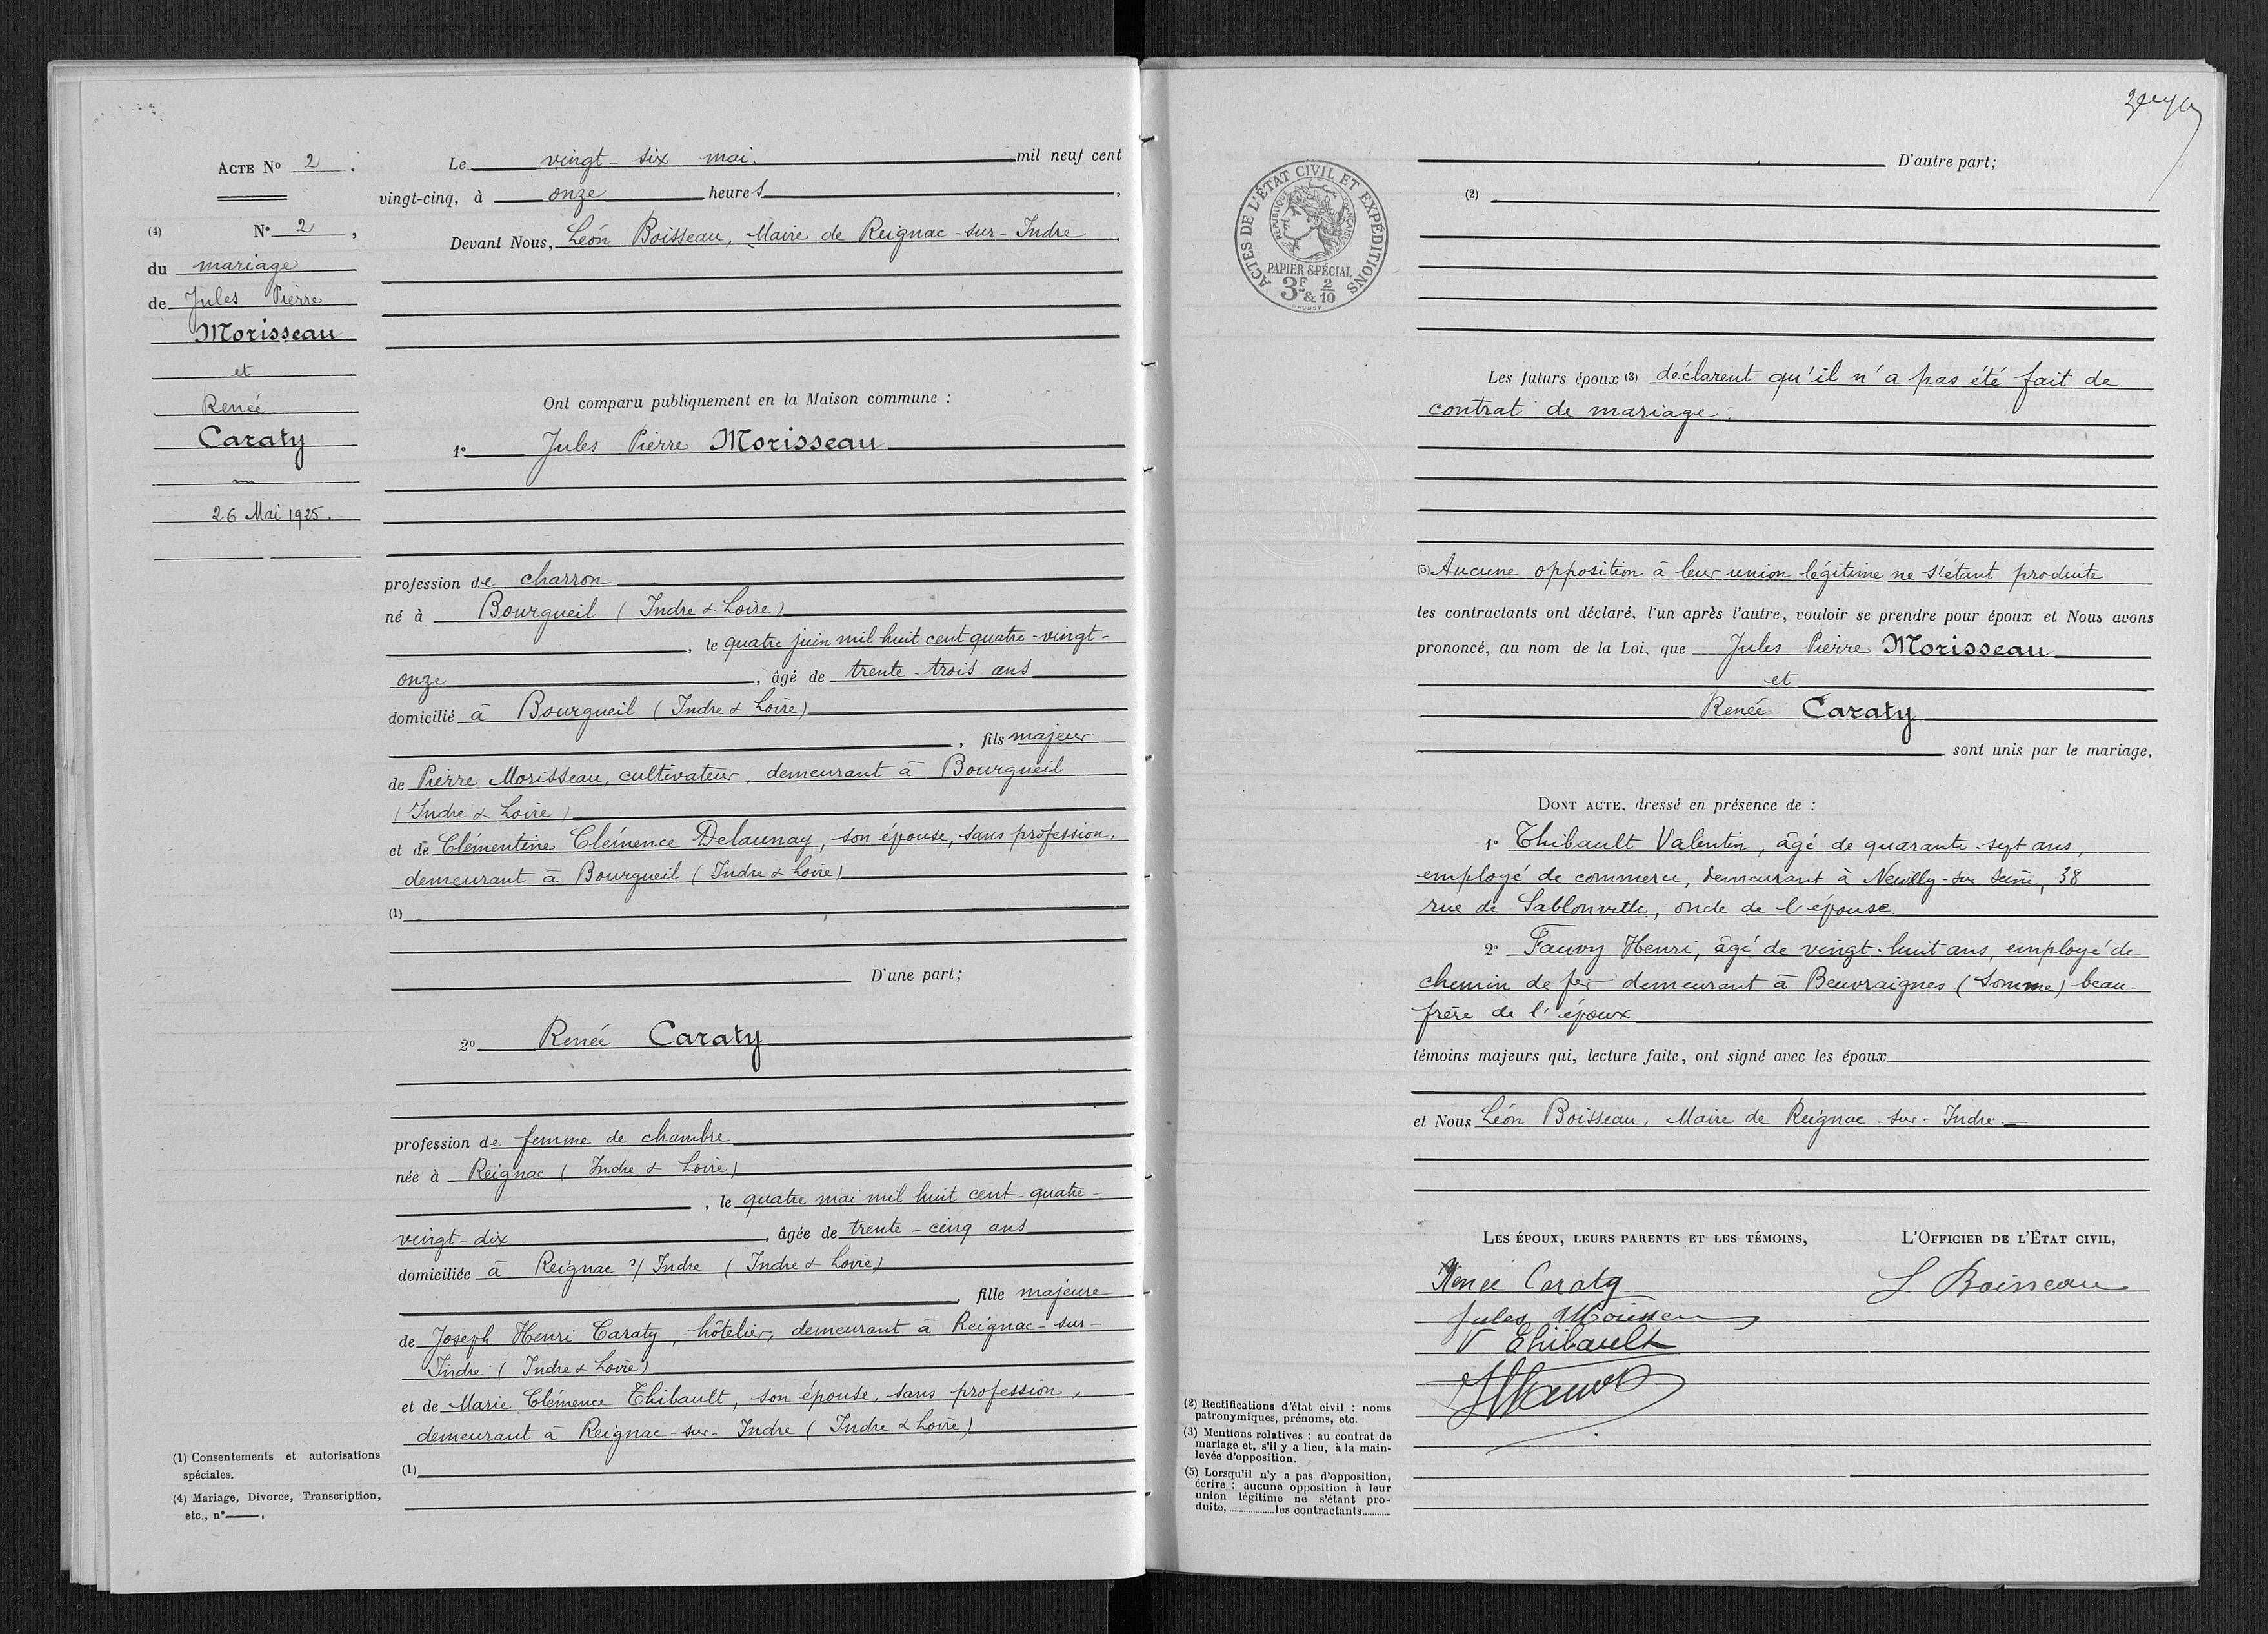 Acte No 2.
No 2,
(4)
du mariage
de Jules Pierre
Morisseau
et
Renée
Caraty
26 Mai 1925.
Le vingt-six mai. mil neuf cent
vingt-cinq, à onze heures,
Devant Nous, Léon Boisseau, Maire de Reignac-sur-Indre
Ont comparu publiquement en la Maison commune :
1° Jules Pierre Morisseau
profession de charron
né à Bourgueil (Indre & Loire)
, le quatre juin mil huit cent quatre-vingt-
onze, âgé de trente-trois ans
domicilié à Bourgueil (Indre & Loire)
, fils majeur
de Pierre Morisseau, cultivateur, demeurant à Bourgueil
(Indre & Loire)
et de Clémentine Clémence Delaunay, son épouse, sans profession,
demeurant à Bourgueil (Indre & Loire)
(1)
D'une part;
2° Renée Caraty
profession de femme de chambre
née à Reignac (Indre & Loire)
, le quatre mai mil huit cent-quatre-
vingt-dix, âgée de trente-cinq ans
domiciliée à Reignac s/ Indre (Indre & Loire)
, fille majeure
de Joseph Henri Caraty, hôtelier, demeurant à Reignac-sur-
Indre (Indre & Loire)
et de Marie Clémence Thibault, son épouse, sans profession,
demeurant à Reignac-sur-Indre (Indre & Loire)
(1)
(1) Consentements et autorisations
spéciales.
(4) Mariage, Divorce, Transcription,
etc., n° ,
ACTES DE L'ÉTAT CIVIL ET EXPÉDITIONS
RÉPUBLIQUE FRANÇAISE
PAPIER SPÉCIAL
3F & 2/10
D'autre part;
(2)
Les futurs époux (3) déclarent qu'il n'a pas été fait de
contrat de mariage.
(5) Aucune opposition à leur union légitime ne s'étant produite
les contractants ont déclaré, l'un après l'autre, vouloir se prendre pour époux et Nous avons
prononcé, au nom de la Loi, que Jules Pierre Morisseau
et
Renée Caraty
sont unis par le mariage,
Dont acte, dressé en présence de :
1° Thibault Valentin, âgé de quarante-sept ans,
employé de commerce, demeurant à Neuilly-sur Seine, 38
rue de Sablonville, oncle de l'épouse
2° Fauvy Henri, âgé de vingt-huit ans, employé de
chemin de fer demeurant à Beuvraignes (Somme) beau-
frère de l'époux
témoins majeurs qui, lecture faite, ont signé avec les époux
et Nous Léon Boisseau, Maire de Reignac-sur-Indre.
Les époux, leurs parents et les témoins,
L'Officier de l'État civil,
Renée Caraty
L Boisseau
Jules Morisseau
V Thibault
(2) Rectifications d'état civil : noms
patronymiques, prénoms, etc.
(3) Mentions relatives : au contrat de
mariage et, s'il y a lieu, à la main-
levée d'opposition.
(5) Lorsqu'il n'y a pas d'opposition,
écrire : aucune opposition à leur
union légitime ne s'étant pro-
duite, ........ les contractants........